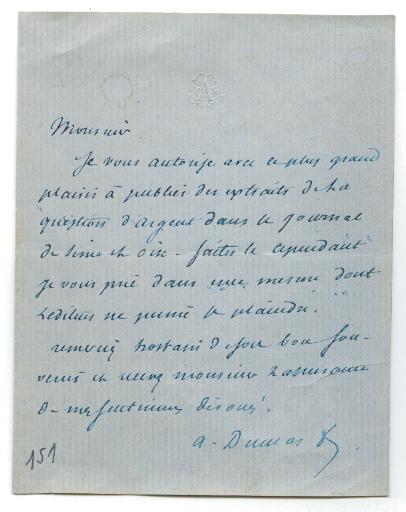 Monsieur
Je vous autorise avec le plus grand
plaisir à publier des extraits de la
question d'argent dans le journal
de Seine et Oise - faites le cependant
je vous prie dans une mesure dont
L'éditeur ne puisse se plaindre.
remerciez de son bon sou-
venir et recevez monsieur L'assurance
de mes sentiments dévoués.
A. Dumas f
151